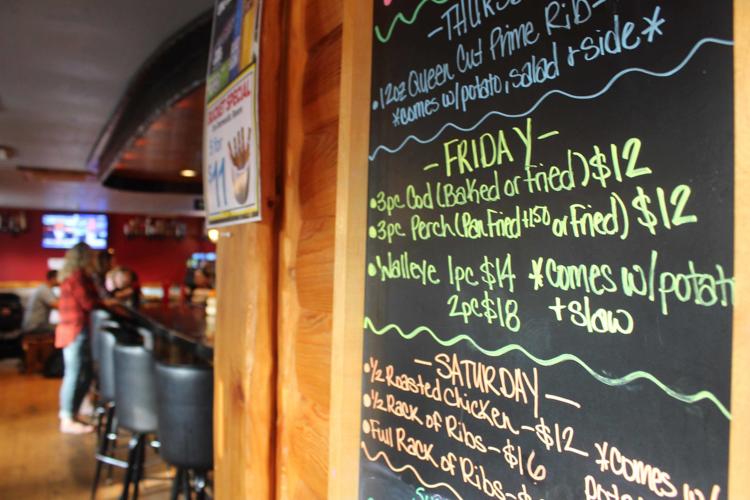 -THURS
• 12oz Queen Cut Prime Rib-
*comes w/potato, salad + side*
-FRIDAY-
• 3pc Cod (Baked or Fried) $12
• 3pc Perch (Pan Fried +1.50 or Fried) $12
• Walleye 1pc $14 *comes w/potato
2pc $18 + slaw
-SATURDAY-
• 1/2 Roasted Chicken-$12
• 1/2 Rack of Ribs-$16 *comes w/
• Full Rack of Ribs-$
BUCKET SPECIAL
5 for
$11